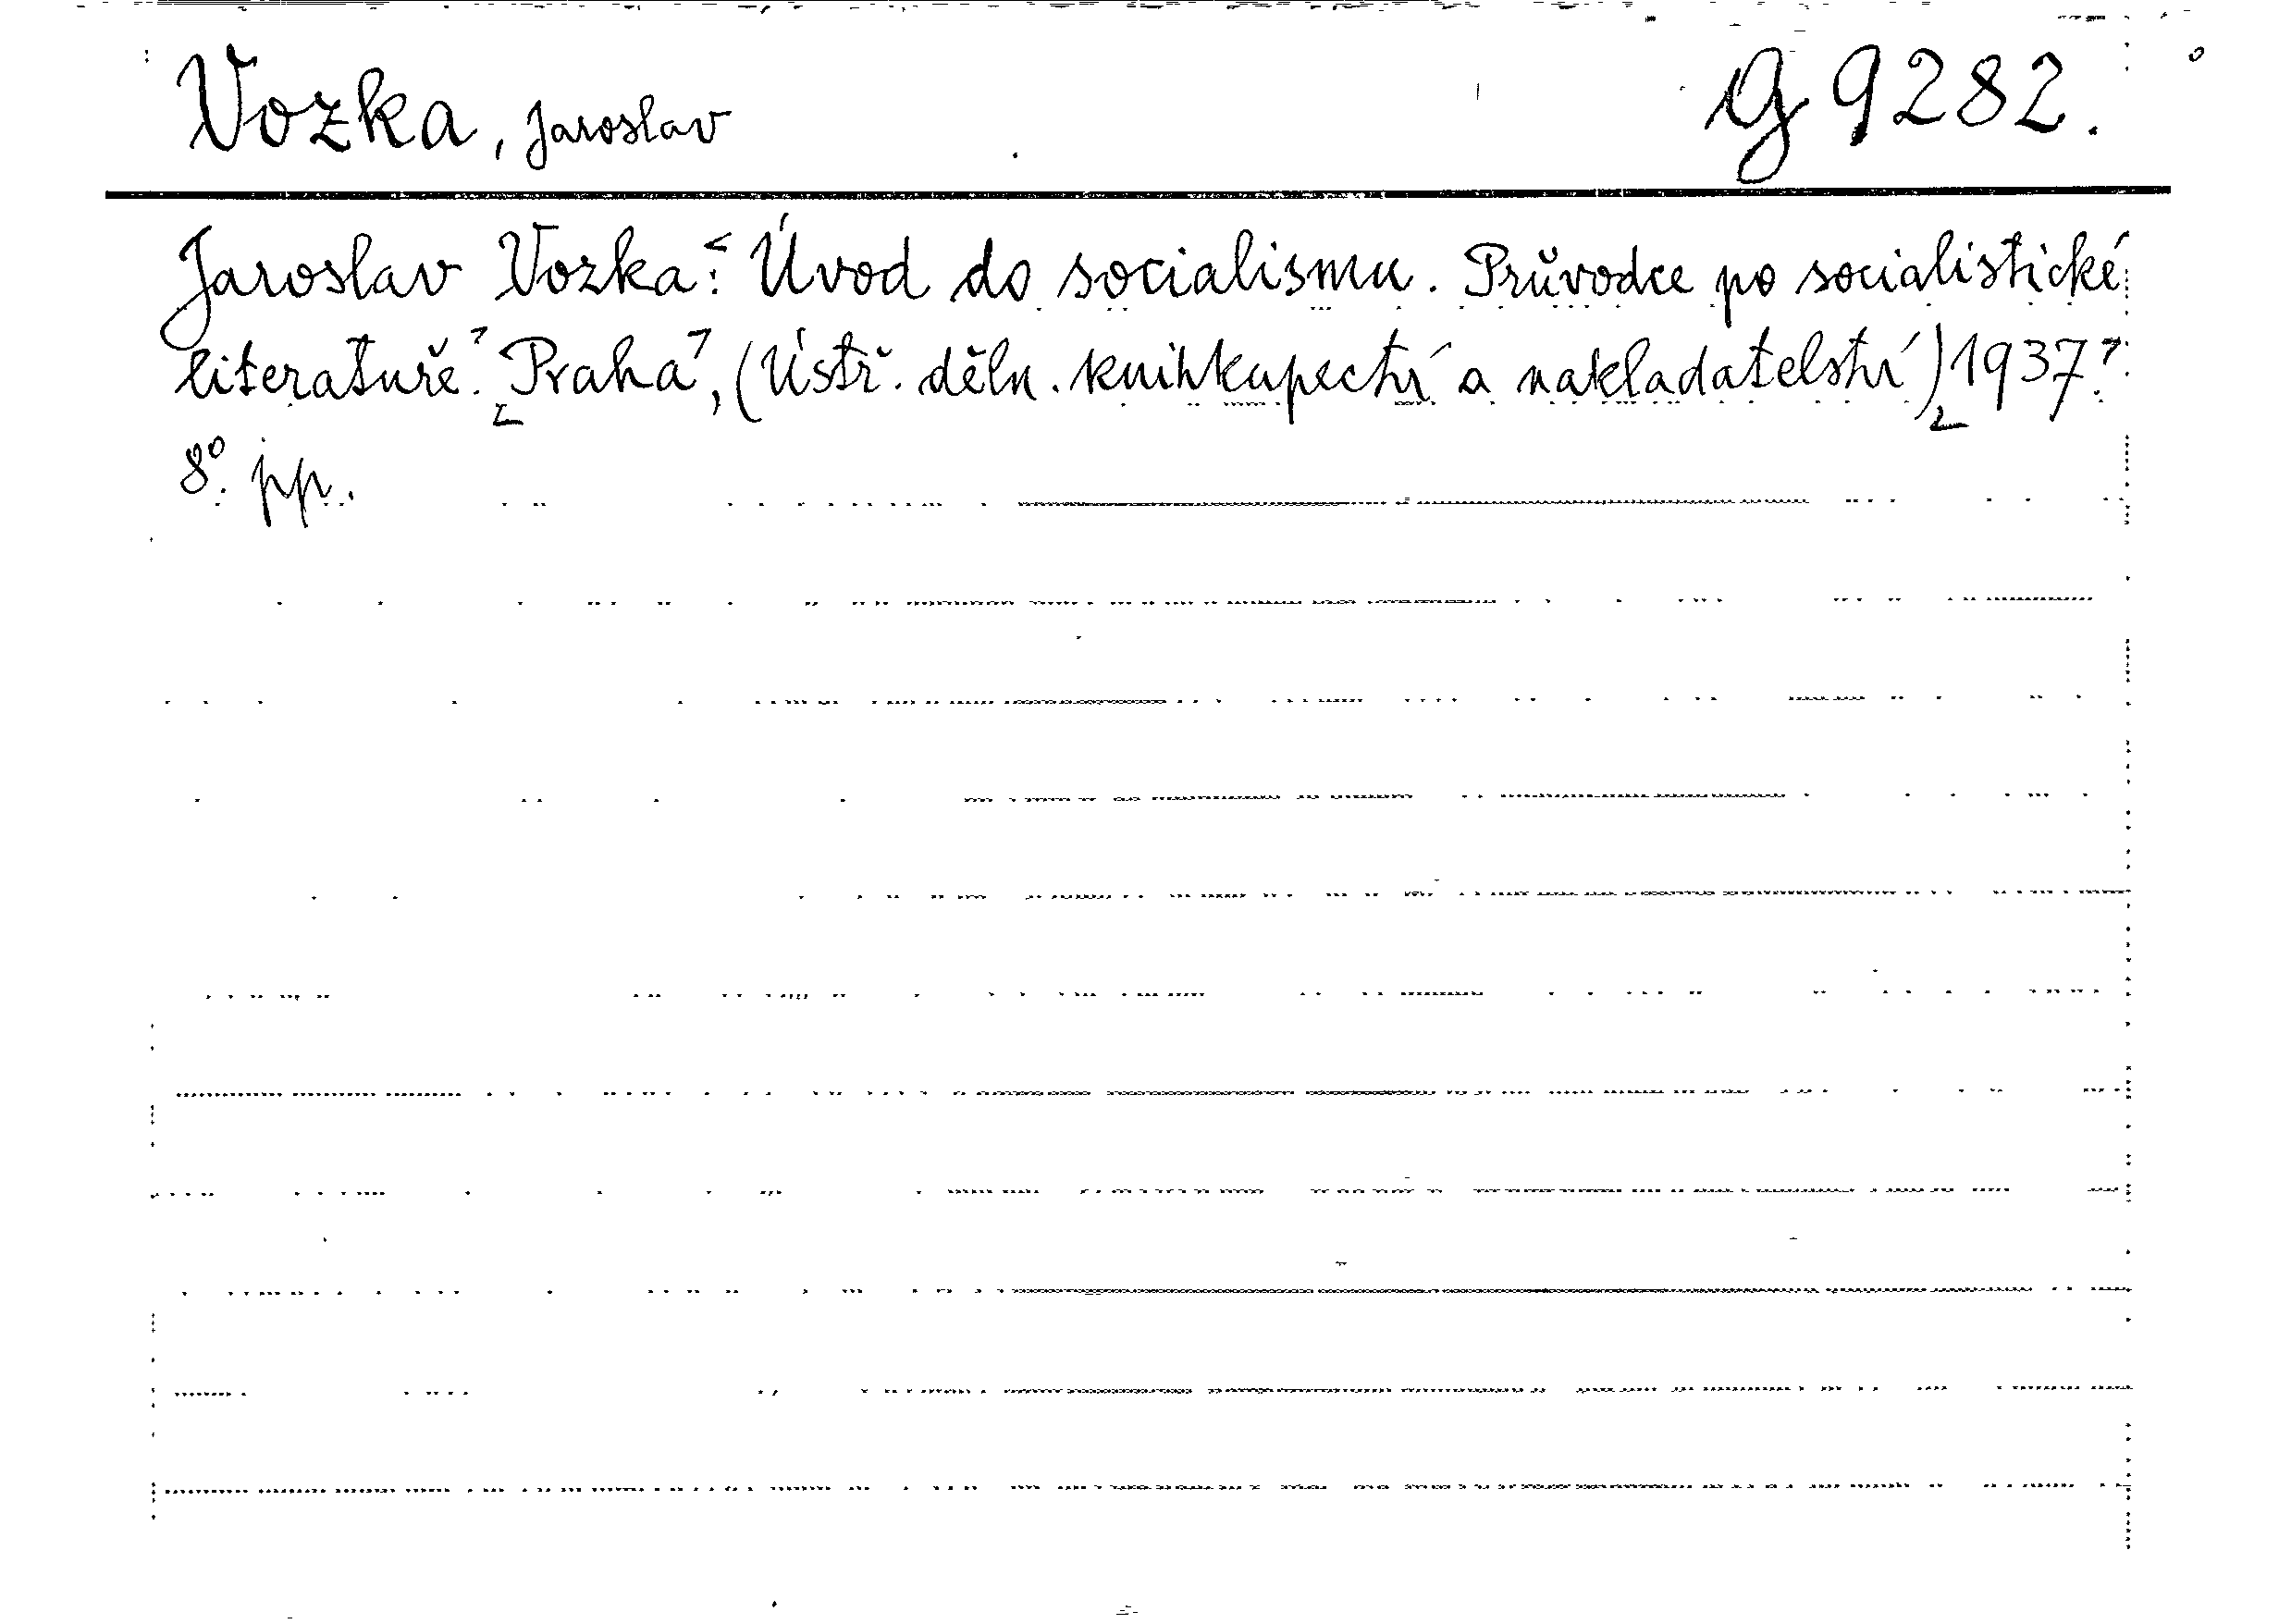 Vozka, Jaroslav G 9282.
Jaroslav Vozka: Úvod do socialismu. Průvodce po socialistické
literatuře. Praha, (Ústř. děln. knihkupectví a nakladatelství) 1937.
8°. pp.